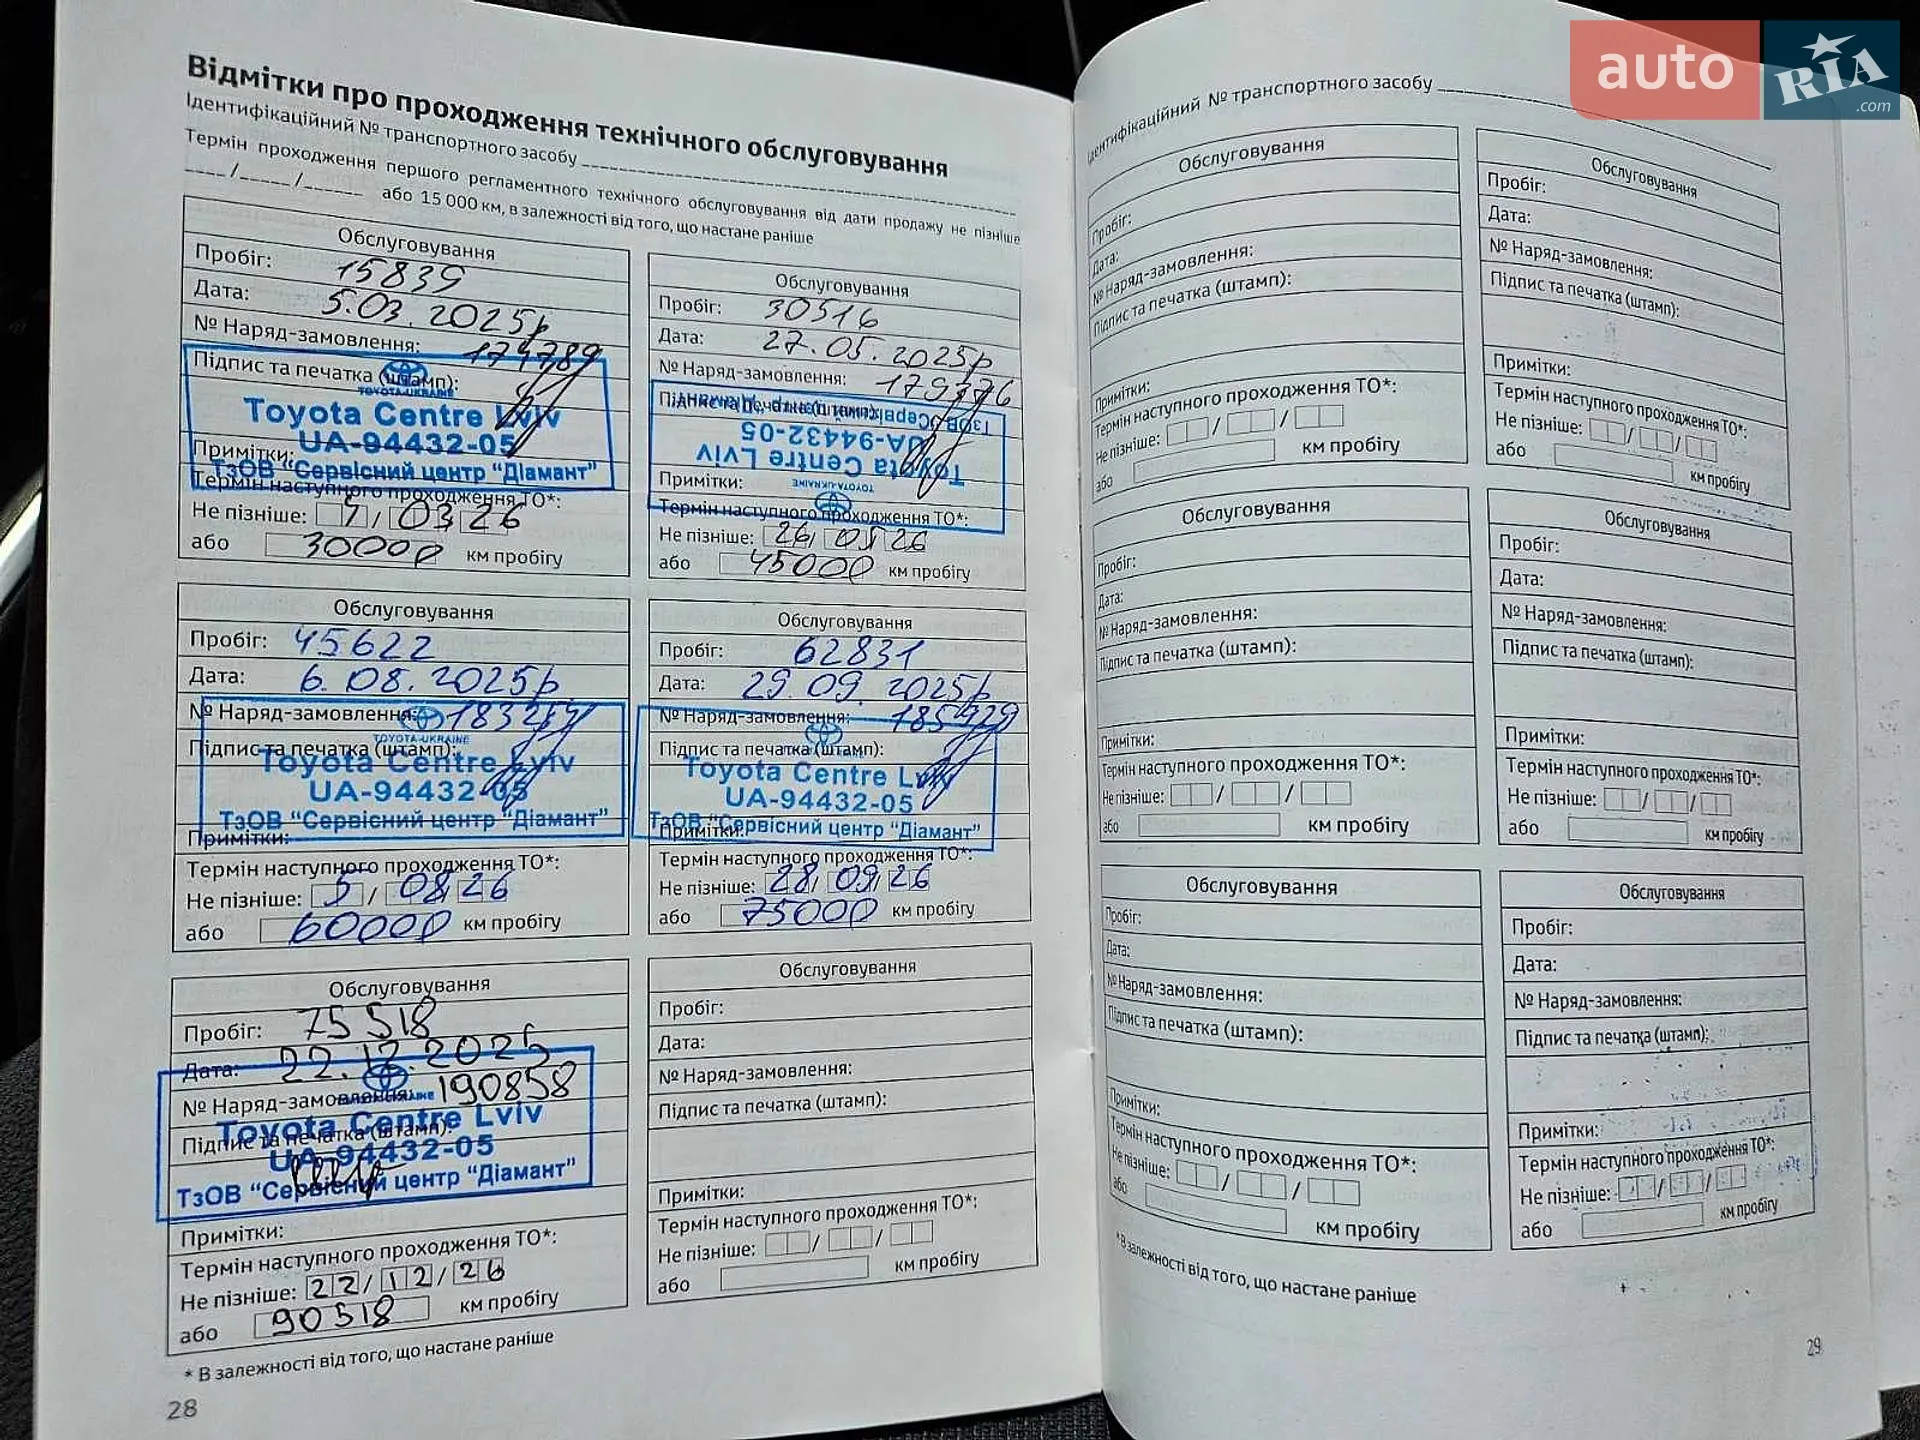 auto RIA .com
Відмітки про проходження технічного обслуговування
Ідентифікаційний № транспортного засобу
Термін проходження першого регламентного технічного обслуговування від дати продажу не пізніше
/ / або 15 000 км, в залежності від того, що настане раніше
Обслуговування
Пробіг: 15839
Дата: 5.03.2025р
№ Наряд-замовлення: 174789
Підпис та печатка (штамп):
TOYOTA-UKRAINE
Toyota Centre Lviv
UA-94432-05
ТзОВ "Сервісний центр "Діамант"
Примітки:
Термін наступного проходження ТО*:
Не пізніше: / 03 / 26
або 30000 км пробігу
Обслуговування
Пробіг: 30516
Дата: 27.05.2025р
№ Наряд-замовлення:
Підпис та печатка (штамп):
TOYOTA-UKRAINE
Toyota Centre Lviv
UA-94432-05
ТзОВ "Сервісний центр "Діамант"
Примітки:
Термін наступного проходження ТО*:
Не пізніше: 26 / 05 / 26
або 45000 км пробігу
Обслуговування
Пробіг: 45622
Дата: 6.08.2025р
№ Наряд-замовлення:
Підпис та печатка (штамп):
TOYOTA-UKRAINE
Toyota Centre Lviv
UA-94432-05
ТзОВ "Сервісний центр "Діамант"
Примітки:
Термін наступного проходження ТО*:
Не пізніше: 5 / 08 / 26
або 60000 км пробігу
Обслуговування
Пробіг: 62831
Дата: 29.09.2025р
№ Наряд-замовлення: 185929
Підпис та печатка (штамп):
Toyota Centre Lviv
UA-94432-05
ТзОВ "Сервісний центр "Діамант"
Примітки:
Термін наступного проходження ТО*:
Не пізніше: 28 / 09 / 26
або 75000 км пробігу
Обслуговування
Пробіг: 75518
Дата: 22.12.2025
№ Наряд-замовлення: 190858
Підпис та печатка (штамп):
Toyota Centre Lviv
UA-94432-05
ТзОВ "Сервісний центр "Діамант"
Примітки:
Термін наступного проходження ТО*:
Не пізніше: 22 / 12 / 26
або 90518 км пробігу
Обслуговування
Пробіг:
Дата:
№ Наряд-замовлення:
Підпис та печатка (штамп):
Примітки:
Термін наступного проходження ТО*:
Не пізніше: / /
або км пробігу
* В залежності від того, що настане раніше
28
Ідентифікаційний № транспортного засобу
Обслуговування
Пробіг:
Дата:
№ Наряд-замовлення:
Підпис та печатка (штамп):
Примітки:
Термін наступного проходження ТО*:
Не пізніше: / /
або км пробігу
Обслуговування
Пробіг:
Дата:
№ Наряд-замовлення:
Підпис та печатка (штамп):
Примітки:
Термін наступного проходження ТО*:
Не пізніше: / /
або км пробігу
Обслуговування
Пробіг:
Дата:
№ Наряд-замовлення:
Підпис та печатка (штамп):
Примітки:
Термін наступного проходження ТО*:
Не пізніше: / /
або км пробігу
Обслуговування
Пробіг:
Дата:
№ Наряд-замовлення:
Підпис та печатка (штамп):
Примітки:
Термін наступного проходження ТО*:
Не пізніше: / /
або км пробігу
Обслуговування
Пробіг:
Дата:
№ Наряд-замовлення:
Підпис та печатка (штамп):
Примітки:
Термін наступного проходження ТО*:
Не пізніше: / /
або км пробігу
Обслуговування
Пробіг:
Дата:
№ Наряд-замовлення:
Підпис та печатка (штамп):
Примітки:
Термін наступного проходження ТО*:
Не пізніше: / /
або км пробігу
* В залежності від того, що настане раніше
29